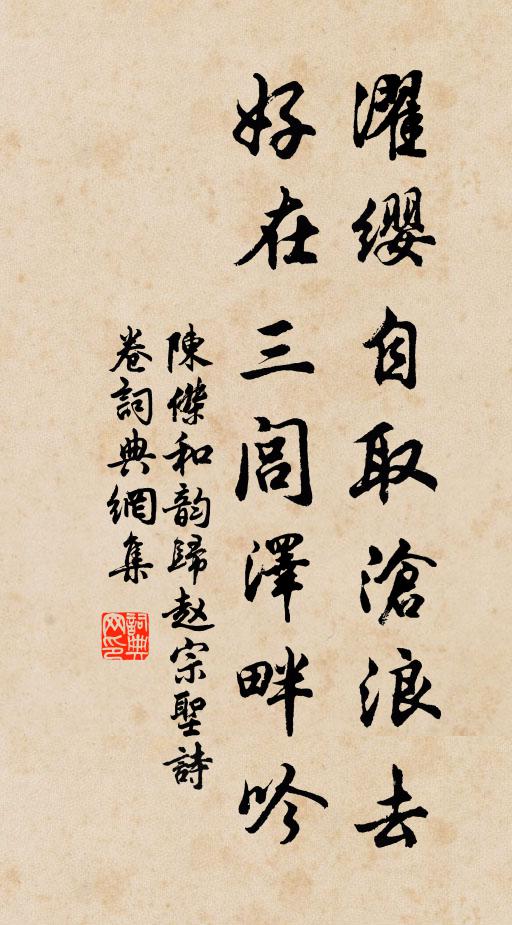 濯缨自取滄浪去
好在三閭澤畔吟
陳傑和韵歸赵宗聖詩
卷詞典網集
詞典网印